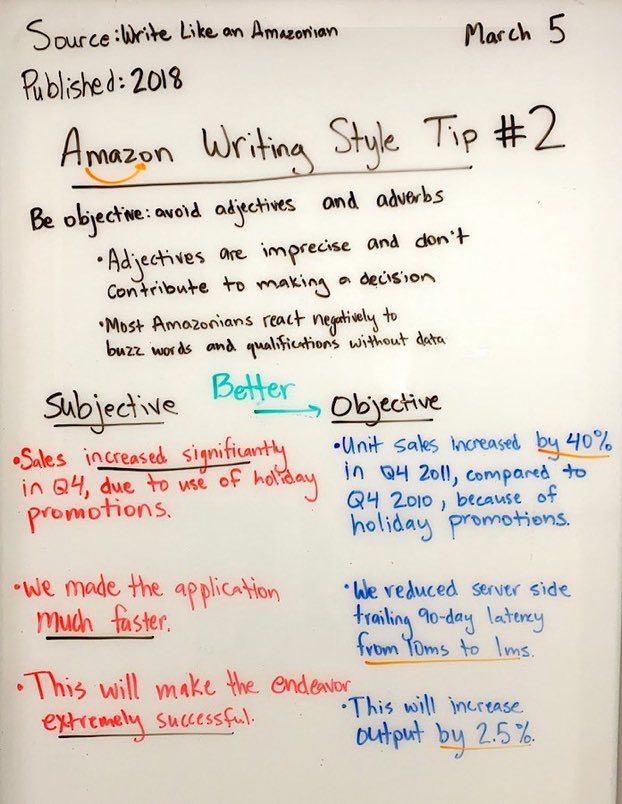 Source: Write Like an Amazonian
March 5
Published: 2018
Amazon Writing Style Tip #2
Be objective: avoid adjectives and adverbs
• Adjectives are imprecise and don't
contribute to making a decision
• Most Amazonians react negatively to
buzz words and qualifications without data
Better
Subjective
Objective
• Sales increased significantly
in Q4, due to use of holiday
promotions.
• Unit sales increased by 40%
in Q4 2011, compared to
Q4 2010, because of
holiday promotions.
• We made the application
much faster.
• We reduced server side
trailing 90-day latency
from 10ms to 1ms.
• This will make the endeavor
extremely successful.
• This will increase
output by 2.5%.